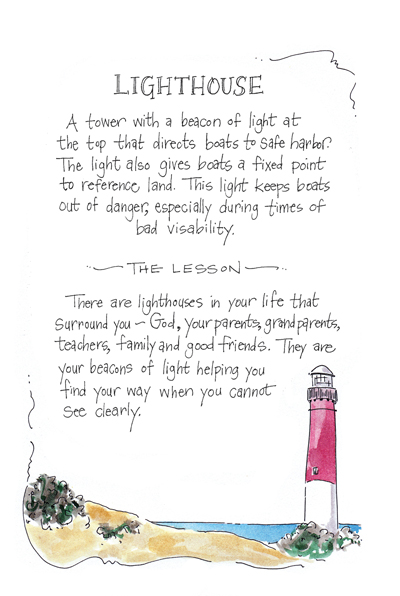 LIGHTHOUSE
A tower with a beacon of light at
the top that directs boats to safe harbor.
The light also gives boats a fixed point
to reference land. This light keeps boats
out of danger, especially during times of
bad visability.
THE LESSON
There are lighthouses in your life that
surround you – God, your parents, grandparents,
teachers, family and good friends. They are
your beacons of light helping you
find your way when you cannot
see clearly.